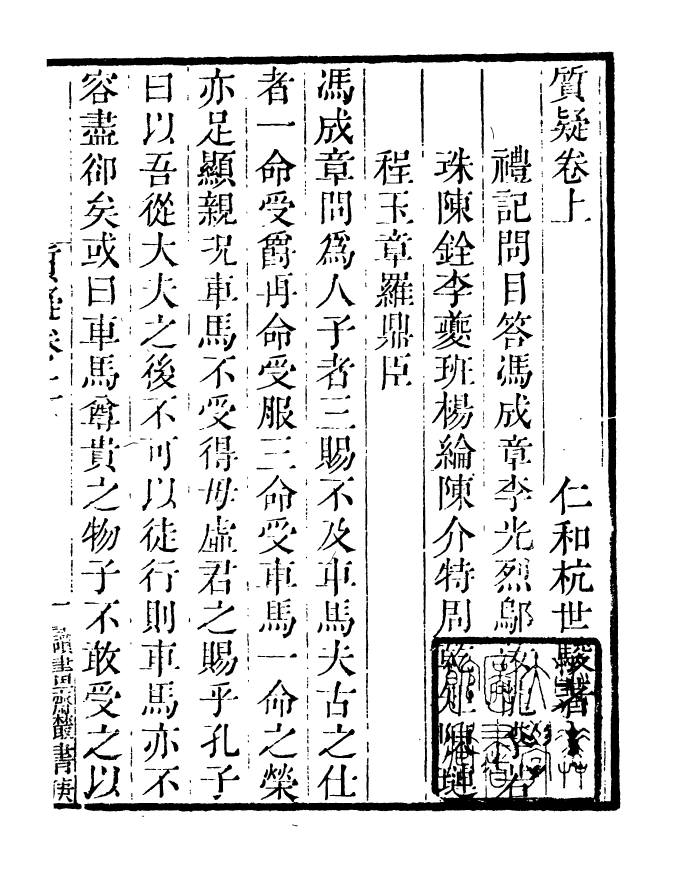 質疑卷上
仁和杭世駿著
禮記問目答馮成章李光烈鄔
珠陳銓李夔班楊綸陳介特周
程玉章羅鼎臣
馮成章問爲人子者三賜不及車馬夫古之仕
者一命受爵再命受服三命受車馬一命之榮
亦足顯親況車馬不受得毋虛君之賜乎孔子
曰以吾從大夫之後不可以徒行則車馬亦不
容盡卻矣或曰車馬尊貴之物子不敢受之以
質疑卷上
一
讀書齋叢書庚